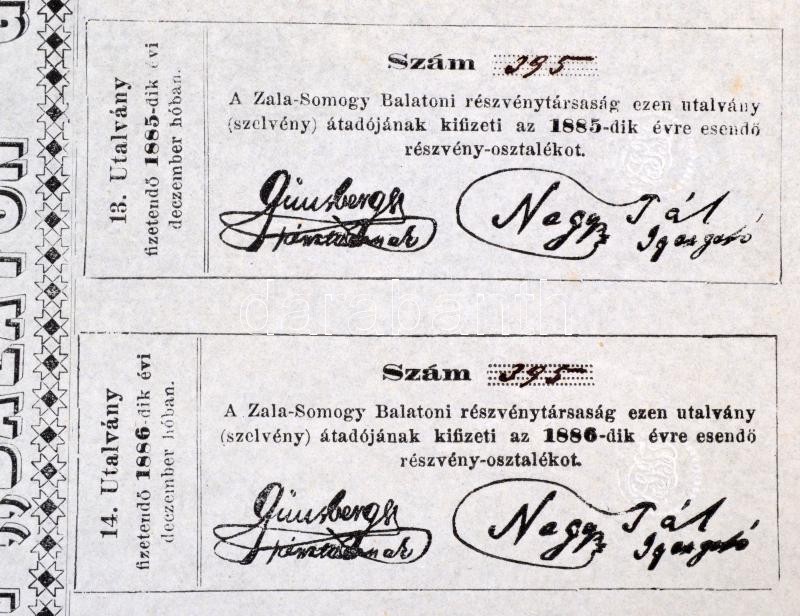 13. Utalvány
fizetendő 1885-dik évi
deczember hóban.
Szám 395
A Zala-Somogy Balatoni részvénytársaság ezen utalvány
(szelvény) átadójának kifizeti az 1885-dik évre esendő
részvény-osztalékot.
Günsbergh
pénztárnak
Nagy Pál
Igazgató
darabanth
14. Utalvány
fizetendő 1886-dik évi
deczember hóban.
Szám 395
A Zala-Somogy Balatoni részvénytársaság ezen utalvány
(szelvény) átadójának kifizeti az 1886-dik évre esendő
részvény-osztalékot.
Günsbergh
pénztárnak
Nagy Pál
Igazgató